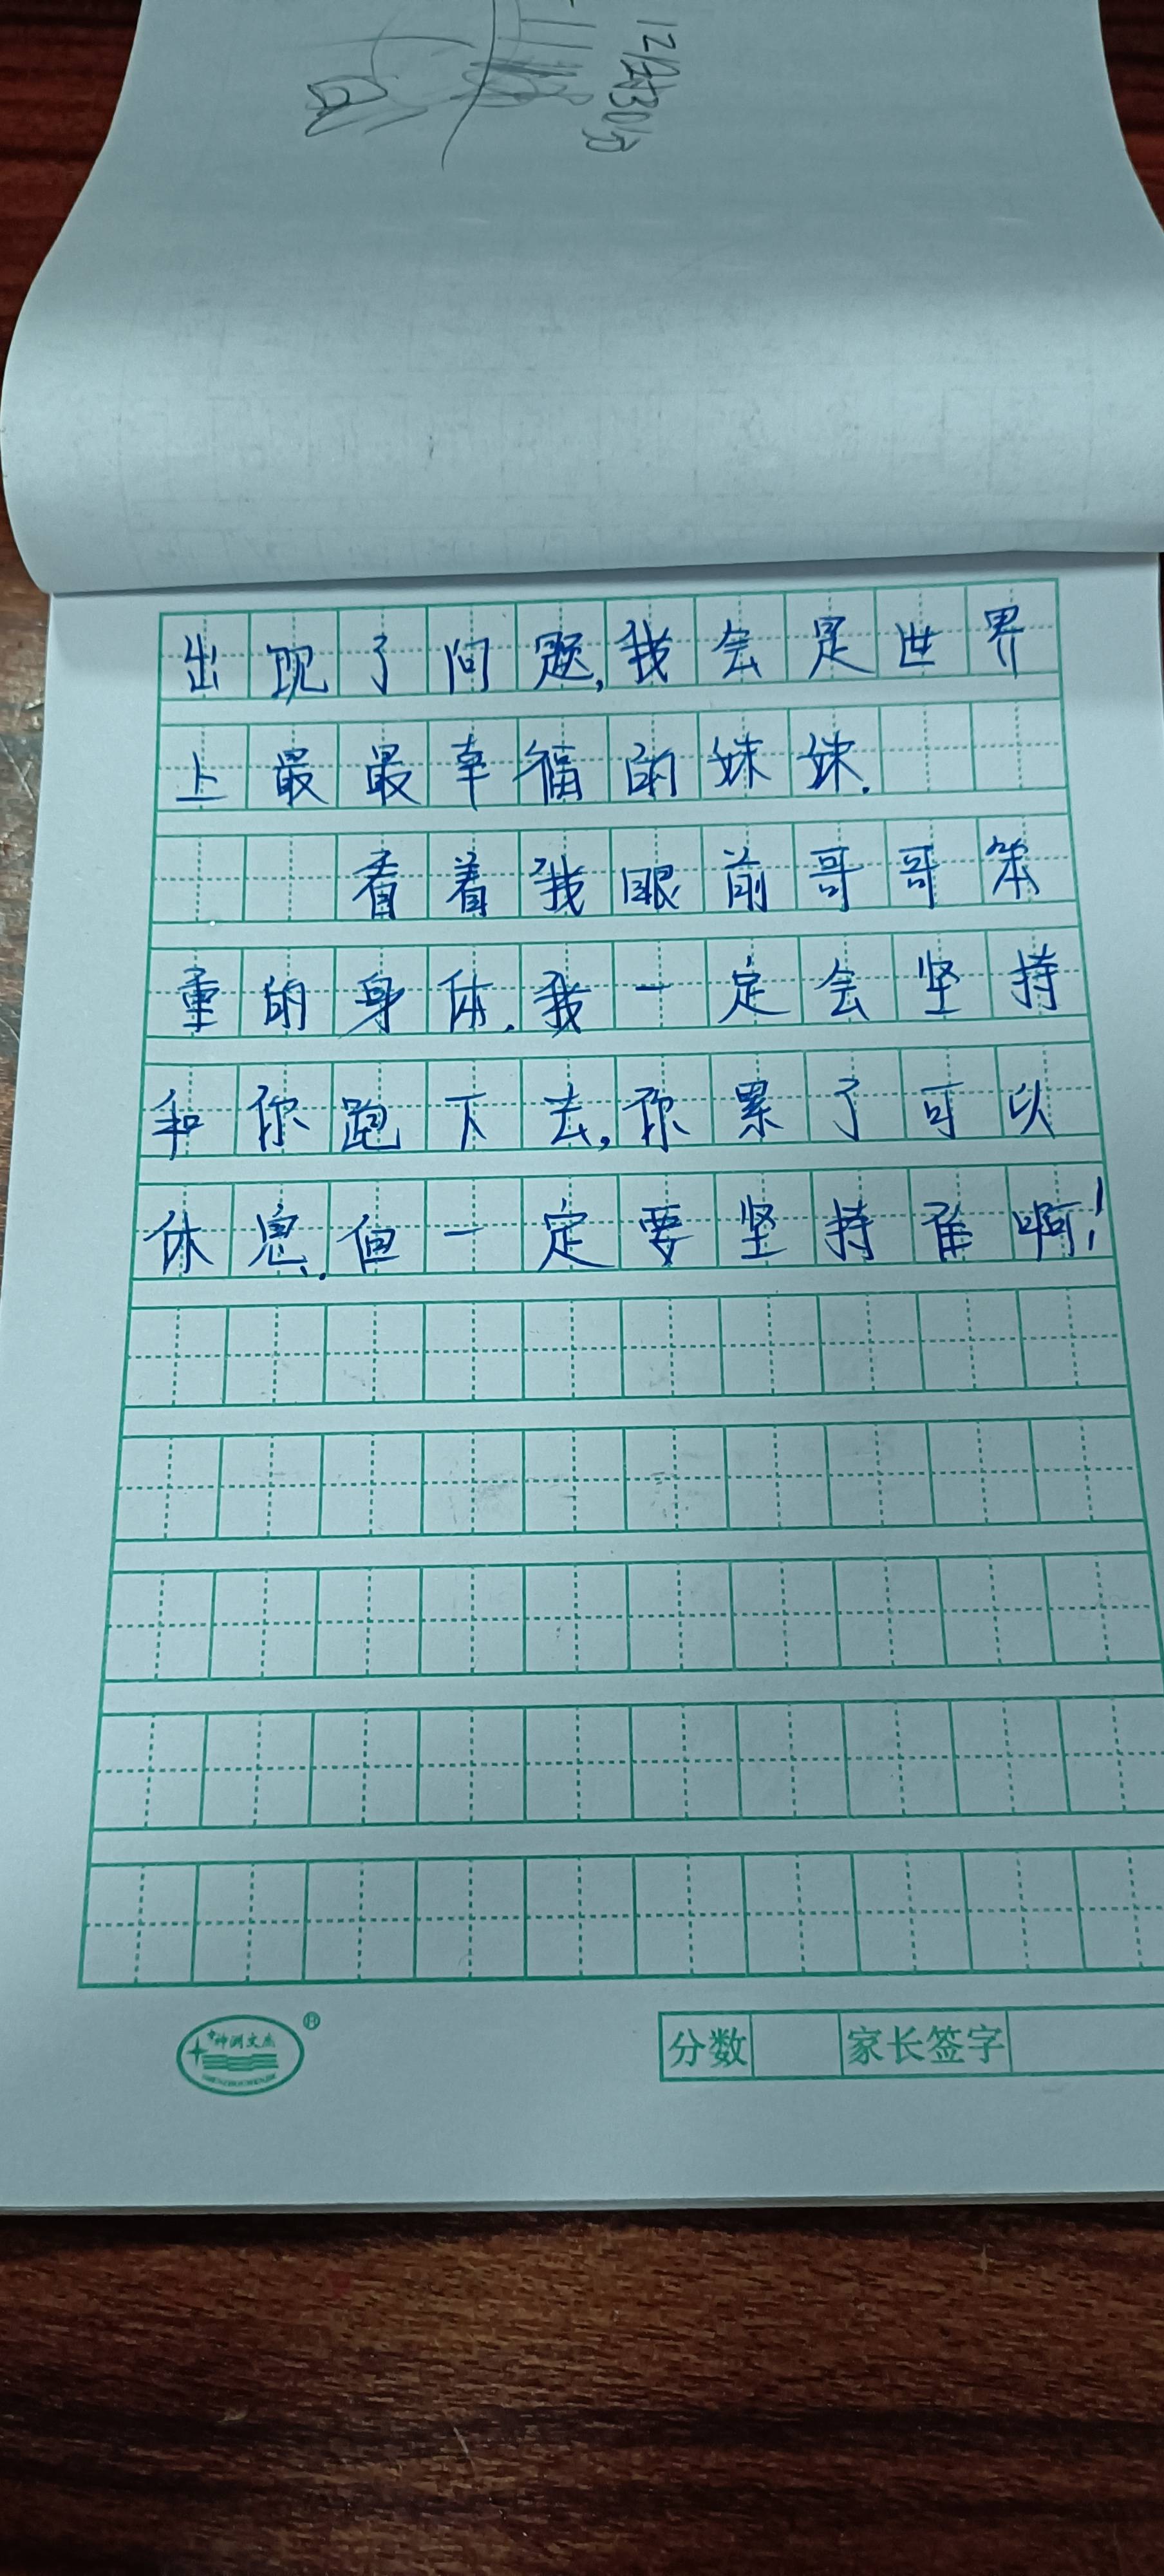 出现了问题,我会是世界
上最最幸福的妹妹.
看着我眼前哥哥笨
重的身体.我一定会坚持
和你跑下去,你累了可以
休息.但一定要坚持住啊!
神洲文杰
®
分数 家长签字